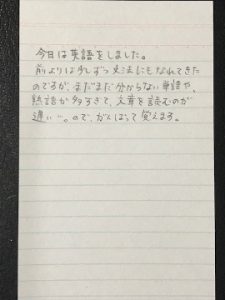 今日は英語をしました。
前よりは少しずつ文法にもなれてきた
のですが、まだまだ分からない単語や、
熟語が多すぎて、文章を読むのが
遅い…。ので、がんばって覚えます。